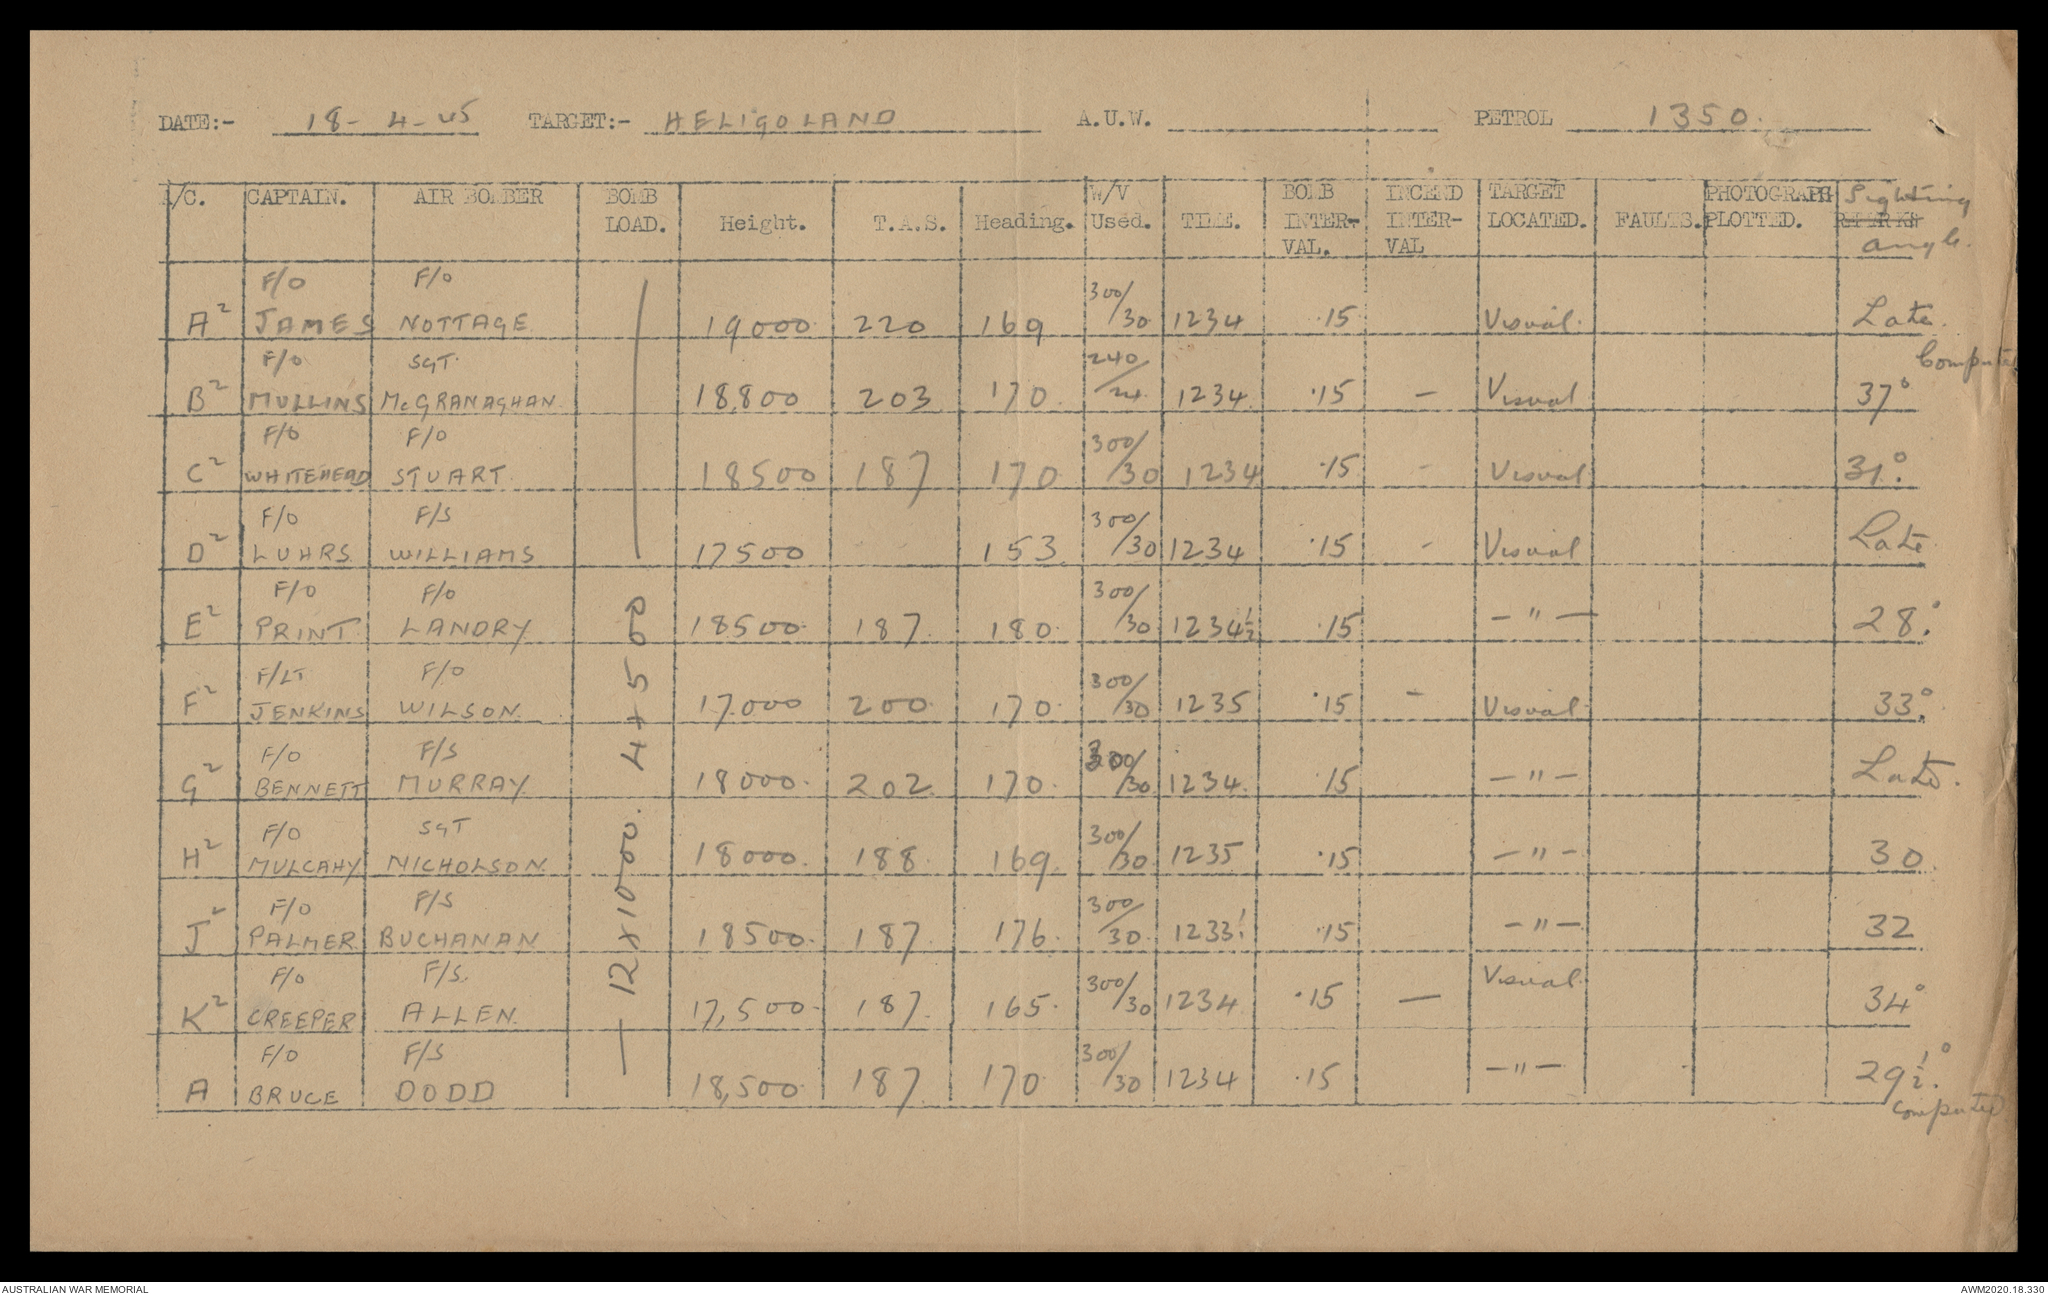 DATE:- 18-4-45 TARGET:- HELIGOLAND A.U.W. PETROL 1350.
A/C. CAPTAIN. AIR BOMBER BOMB LOAD. Height. T.A.S. Heading. W/V Used. TIME. BOMB INTER-VAL. INCEND INTER-VAL TARGET LOCATED. FAULTS. PHOTOGRAPH PLOTTED. REMARKS Sighting angle.
12 x 1000. 4 x 500
F/O F/O
A² JAMES NOTTAGE 19000 220 169 300/30 1234 .15 Visual. Late.
F/O SGT. Computed
B² MULLINS McGRANAGHAN 18,800 203 170. 240/24. 1234 .15 — Visual 37°
F/O F/O
C² WHITEHEAD STUART. 18500 187 170 300/30 1234 .15 - Visual 31°.
F/O F/S
D² LUHRS WILLIAMS 17500 153 300/30 1234 .15 - Visual Late
F/O F/O
E² PRINT LANDRY 18500. 187. 180. 300/30 1234½ .15 — " — 28°.
F/LT F/O
F² JENKINS WILSON. 17.000 200. 170. 300/30 1235 .15 - Visual. 33°.
F/O F/S
G² BENNETT MURRAY 18000. 202. 170. 300/30 1234. .15 — " — Late.
F/O SGT
H² MULCAHY NICHOLSON 18000. 188. 169. 300/30 1235 .15 — " — 30.
F/O F/S
J² PALMER BUCHANAN 18500. 187. 176. 300/30. .15 — " — 32
F/O F/S.
K² CREEPER ALLEN. 17,500. 187. 165. 300/30 1234 .15 — Visual. 34°
F/O F/S
A BRUCE DODD 18,500 187. 170. 300/30 1234 .15 — " — 29½°.
computed
AUSTRALIAN WAR MEMORIAL AWM2020.18.330